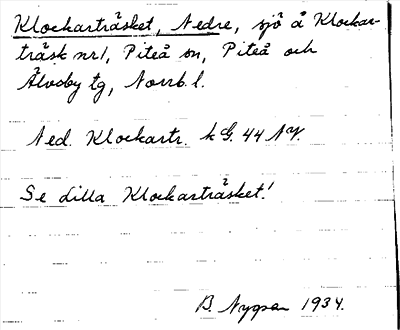 Klockarträsket, Nedre, sjö å Klockar-
träsk nr1, Piteå sn, Piteå och
Älvsby tg, Norrb. l.
Ned. Klockartr. k G. 44 NV.
Se Lilla Klockarträsket!
B. 1934.